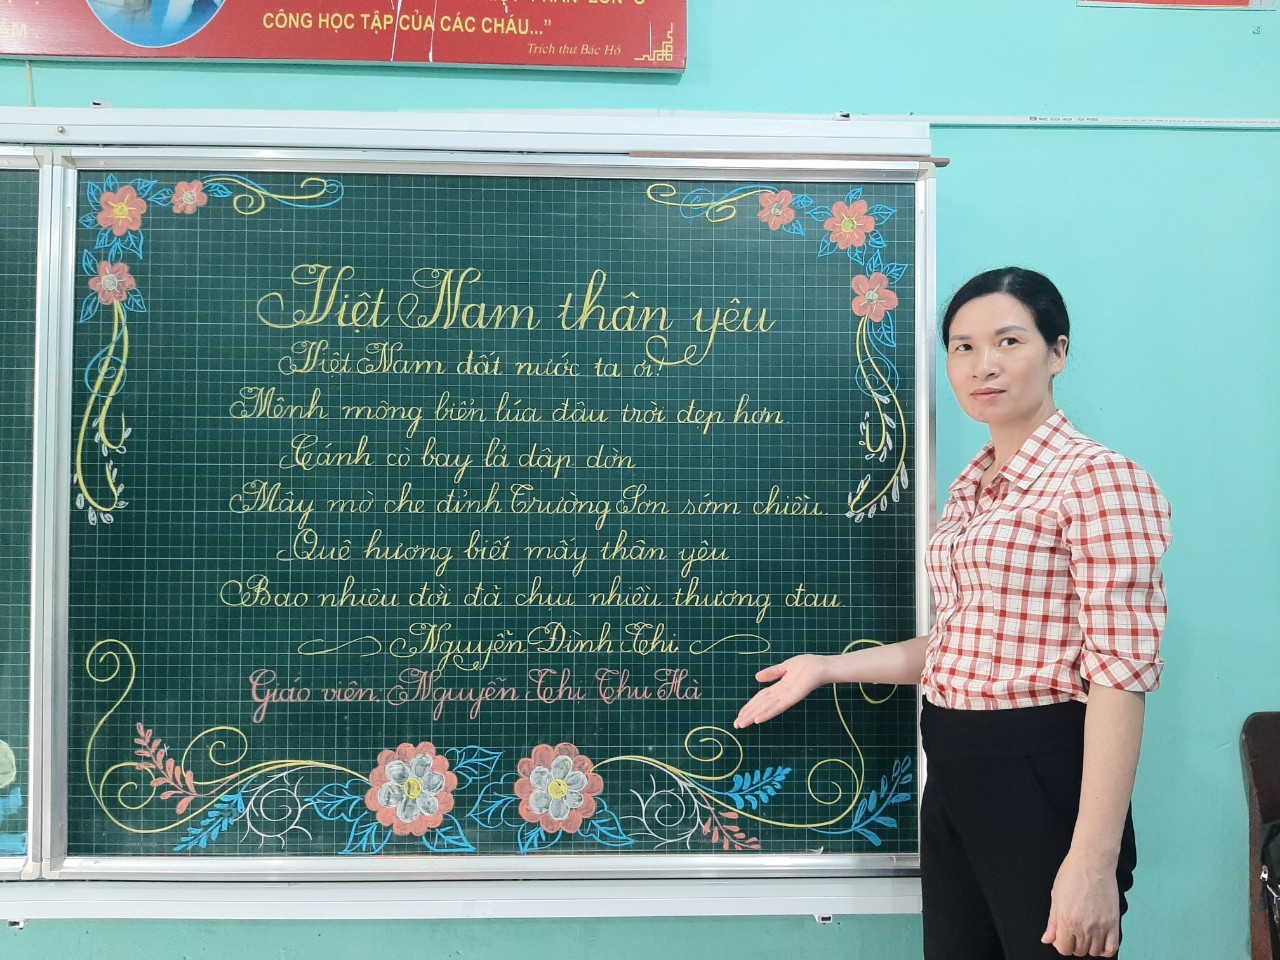 CÔNG HỌC TẬP CỦA CÁC CHÁU..."
Trích thư Bác Hồ
Việt Nam thân yêu
Việt Nam đất nước ta ơi!
Mênh mông biển lúa đâu trời đẹp hơn
Cánh cò bay lả dập dờn
Mây mờ che đỉnh Trường Sơn sớm chiều.
Quê hương biết mấy thân yêu
Bao nhiêu đời đã chịu nhiều thương đau.
Nguyễn Đình Thi
Giáo viên: Nguyễn Thị Thu Hà